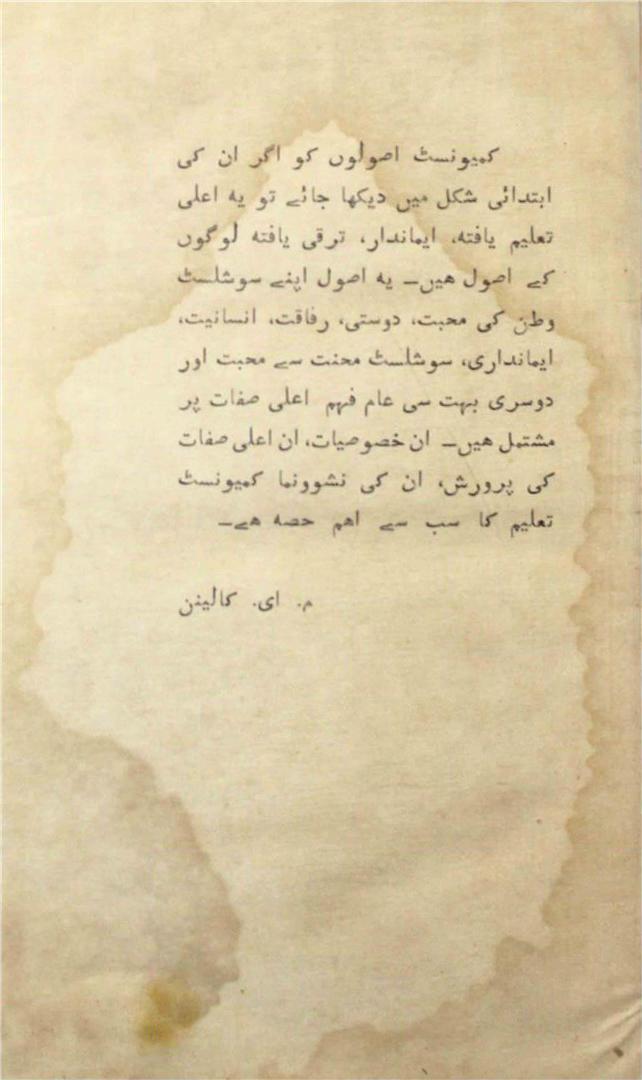 کمیونسٹ اصولوں کو اگر ان کی
ابتدائی شکل میں دیکھا جائے تو یه اعلی
تعلیم یافته، ایماندار، ترقی یافته لوگوں
کے اصول ھیں۔ یه اصول اپنے سوشلسٹ
وطن کی محبت، دوستی، رفاقت، انسانیت،
ایمانداری، سوشلسٹ محنت سے محبت اور
دوسری بہت سی عام فہم اعلی صفات پر
مشتمل ھیں۔ ان خصوصیات، ان اعلی صفات
کی پرورش، ان کی نشوونما کمیونسٹ
تعلیم کا سب سے اھم حصه ھے۔
م. ای. کالینن